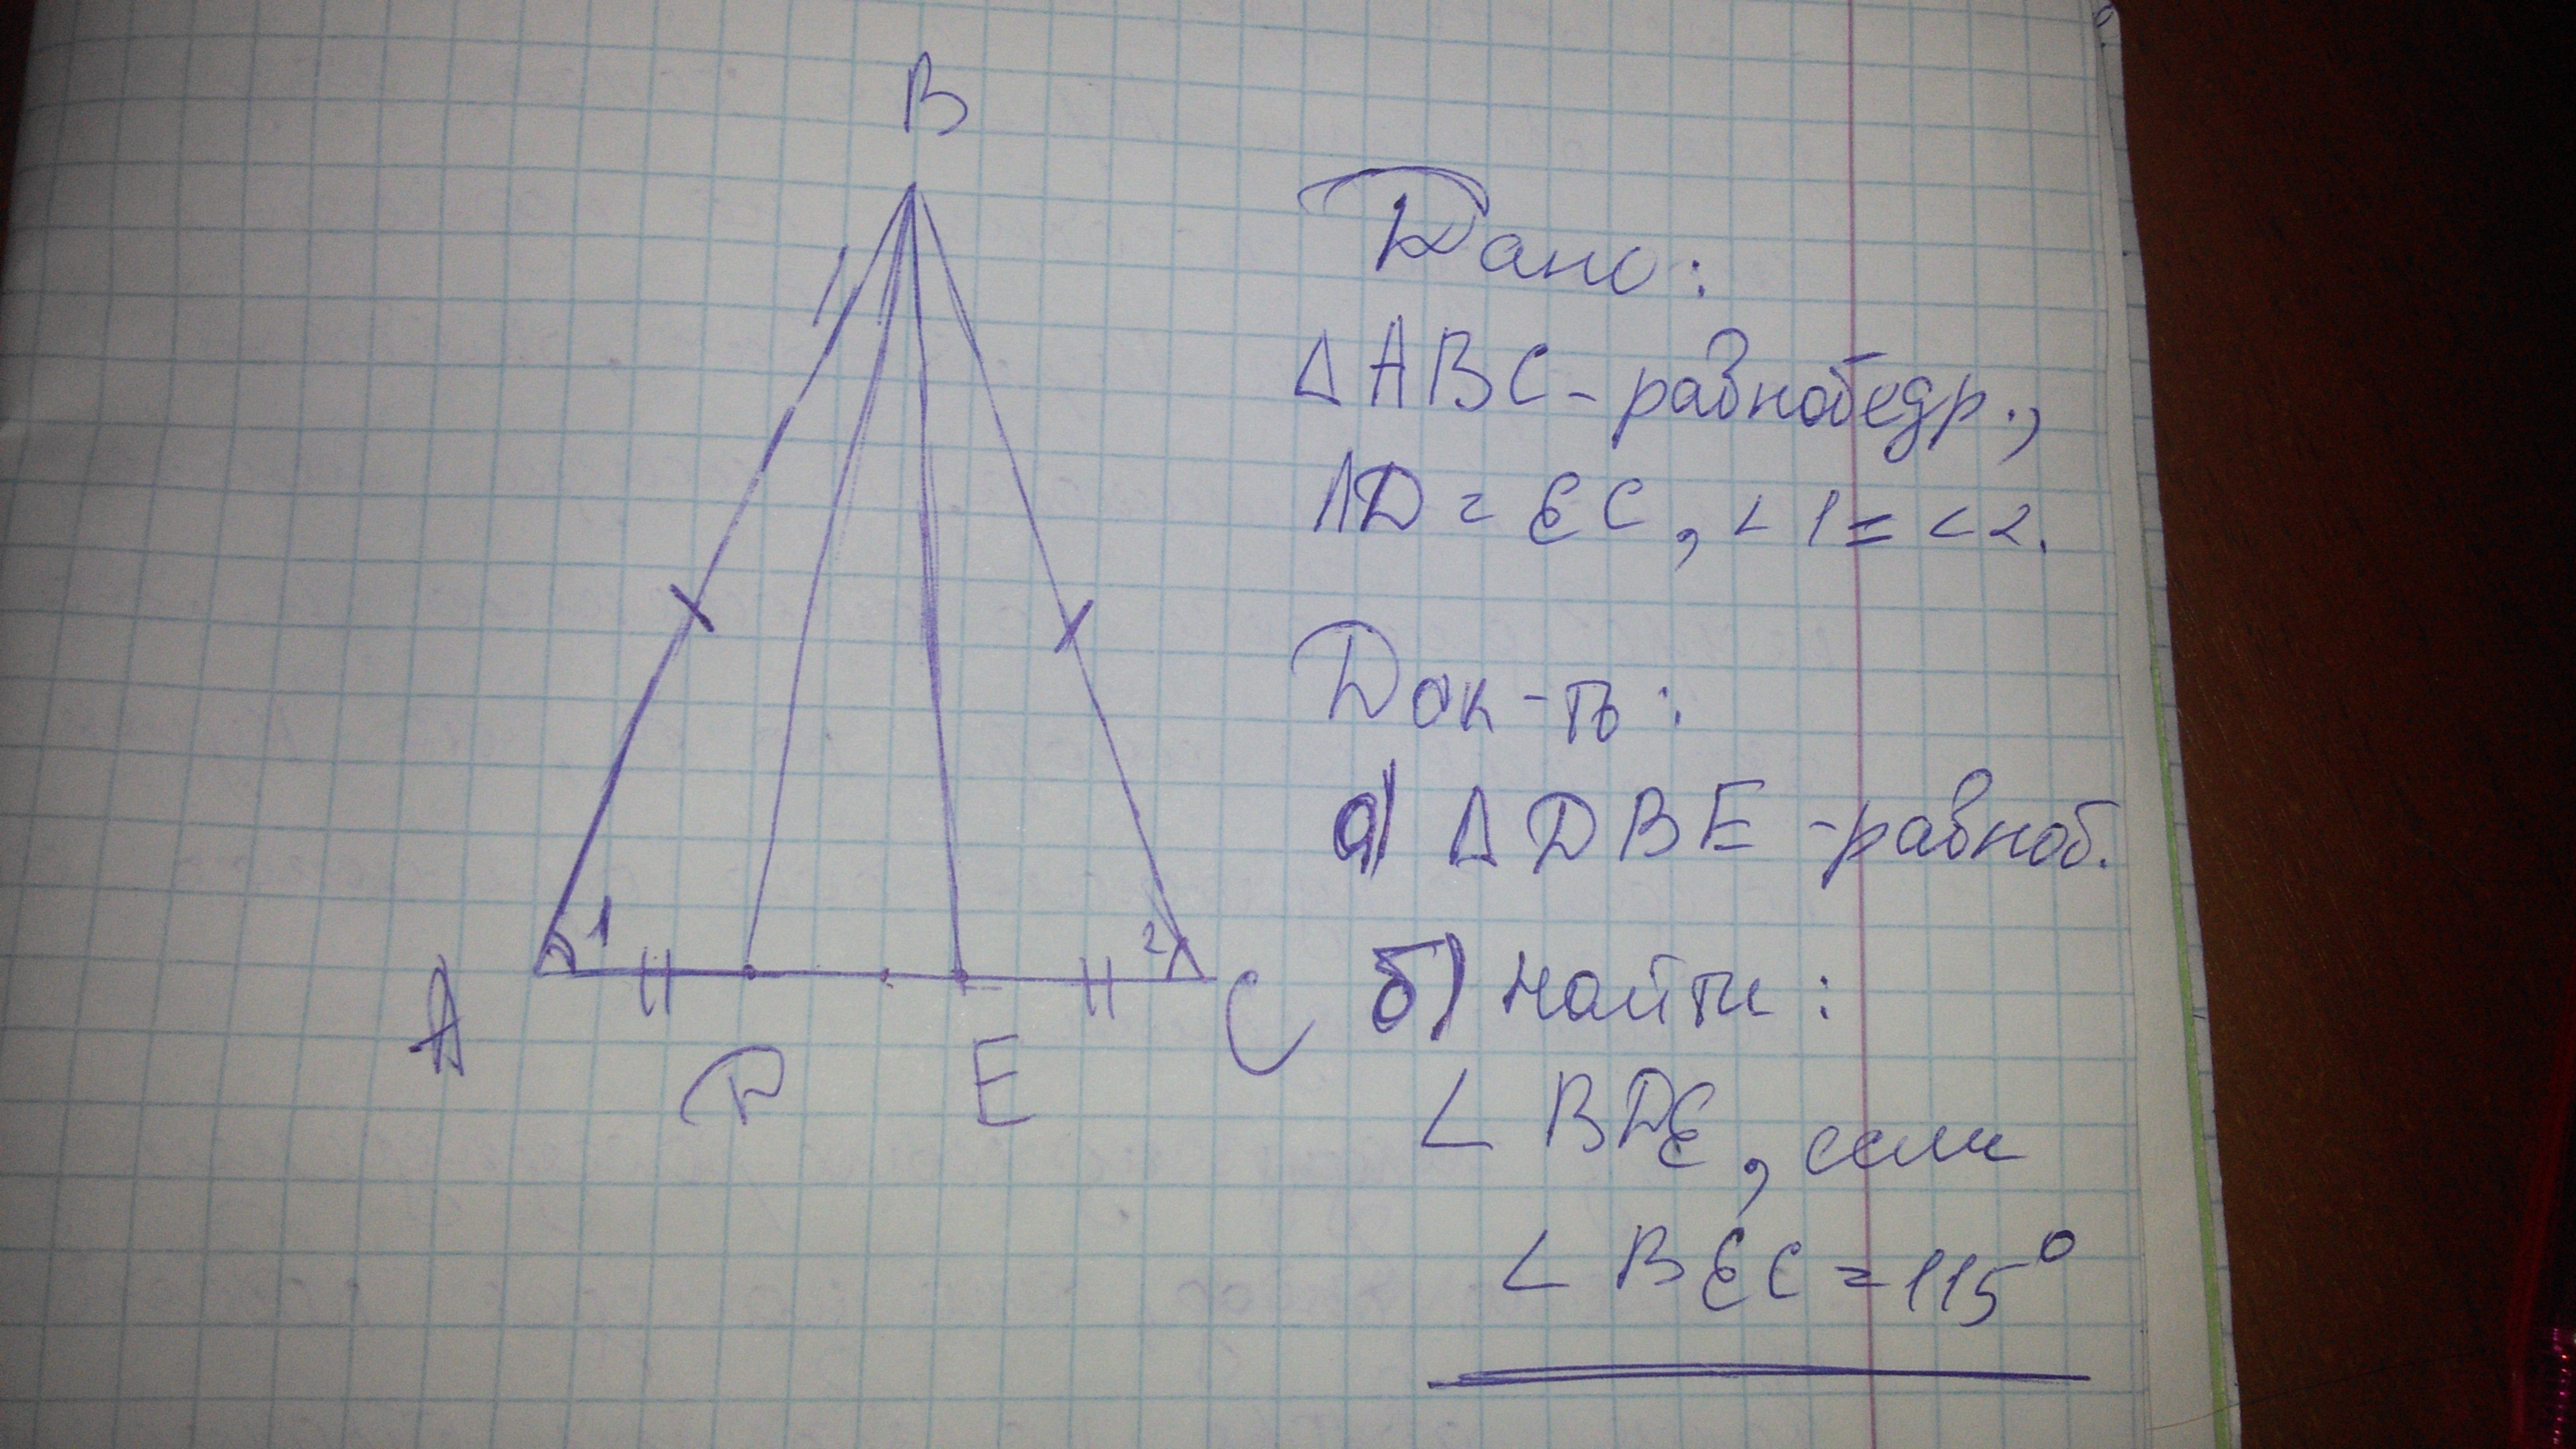 B
Дано:
Δ ABC - равнобедр.,
AD = EC, ∠1 = ∠2.
Док-ть:
а) Δ DBE - равноб.
б) Найти:
∠ BDE, если
∠ BEC = 115°
1 2
A D E C